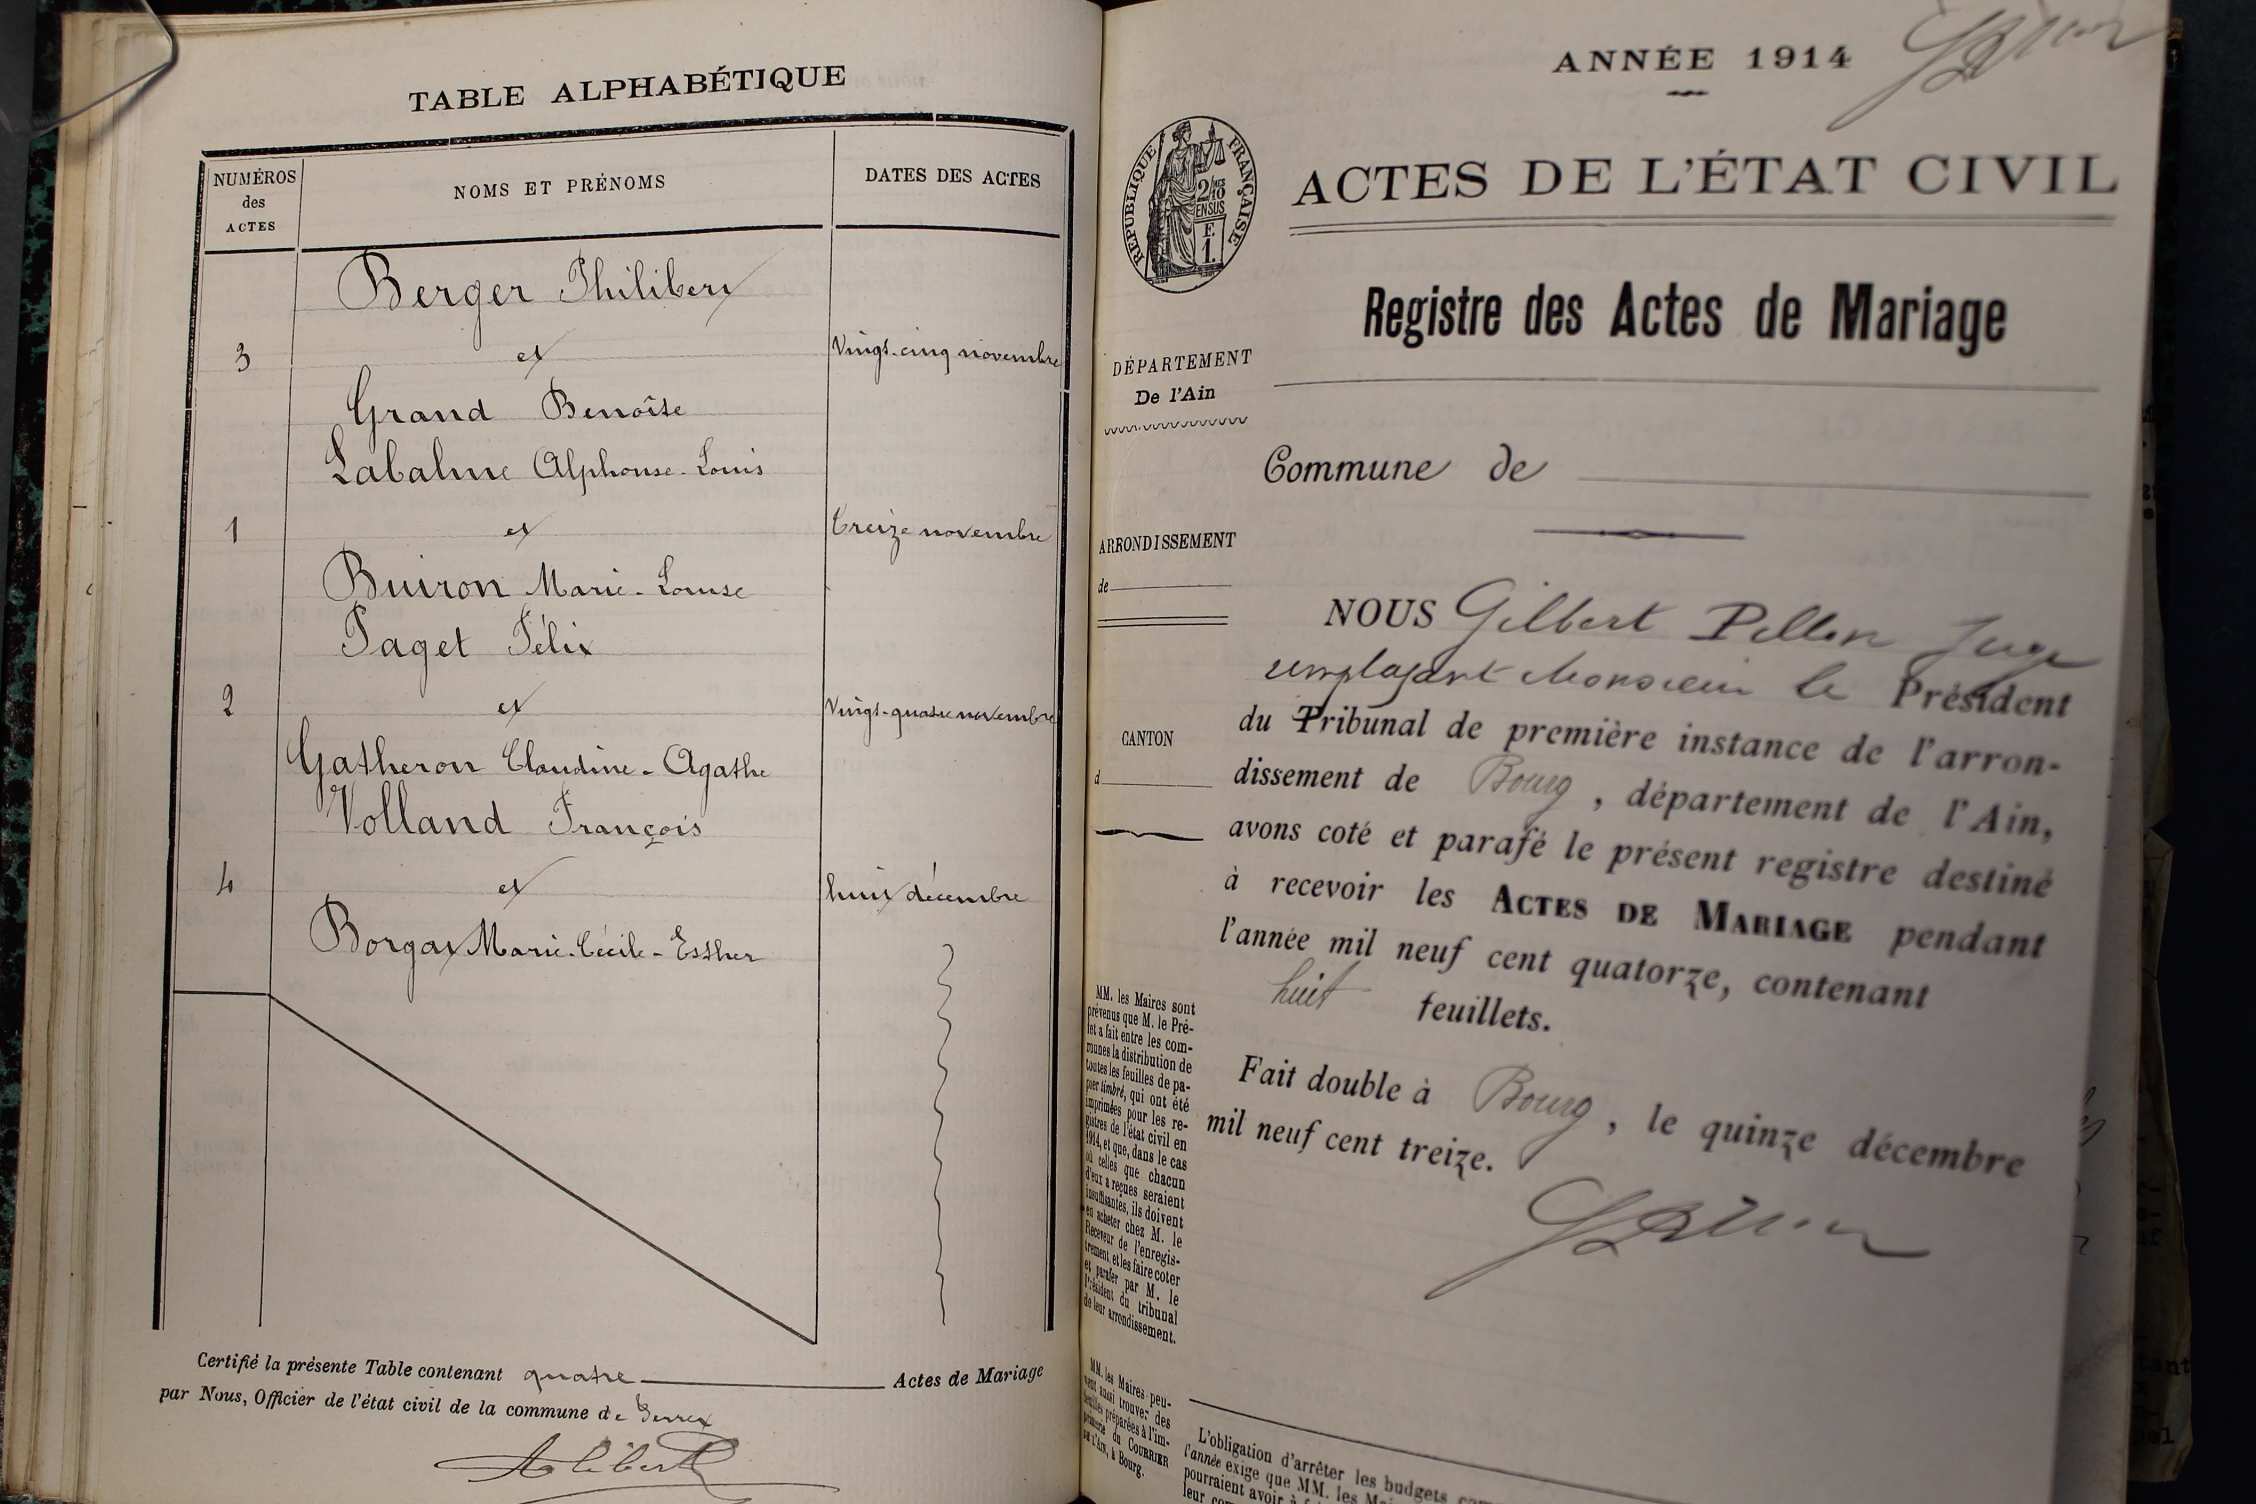 TABLE ALPHABÉTIQUE
NUMÉROS
des
ACTES
NOMS ET PRÉNOMS
DATES DES ACTES
Berger Philibert
3 et Vingt-cinq novembre
Grand Benoîte
Labalme Alphonse-Louis
1 et Treize novembre
Buiron Marie-Louise
Paget Félix
2 et Vingt-quatre novembre
Gatheron Claudine-Agathe
Volland François
4 et huit décembre
Borgat Marie-Cécile-Esther
Certifié la présente Table contenant quatre Actes de Mariage
par Nous, Officier de l'état civil de la commune de
ANNÉE 1914
RÉPUBLIQUE FRANÇAISE
2/10
EN SUS
E.
1.
ACTES DE L'ÉTAT CIVIL
Registre des Actes de Mariage
DÉPARTEMENT
De l'Ain
Commune de
ARRONDISSEMENT
de
CANTON
d
NOUS Gilbert Pellon Juge
remplaçant Monsieur le Président
du Tribunal de première instance de l'arron-
dissement de Bourg, département de l'Ain,
avons coté et parafé le présent registre destiné
à recevoir les ACTES DE MARIAGE pendant
l'année mil neuf cent quatorze, contenant
huit feuillets.
Fait double à Bourg, le quinze décembre
mil neuf cent treize.
MM. les Maires sont
prévenus que M. le Pré-
fet a fait entre les com-
munes la distribution de
toutes les feuilles de pa-
pier timbré, qui ont été
imprimées pour les re-
gistres de l'état civil en
1914, et que, dans le cas
où celles que chacun
d'eux a reçues seraient
insuffisantes, ils doivent
en acheter chez M. le
Receveur de l'enregis-
trement et les faire coter
et parafer par M. le
Président du tribunal
de leur arrondissement.
MM. les Maires peu-
vent aussi trouver des
feuilles préparées à l'im-
primerie du COURRIER
DE L'AIN, à Bourg.
L'obligation d'arrêter les budgets
l'année exige que MM. les
pourraient avoir à
leur